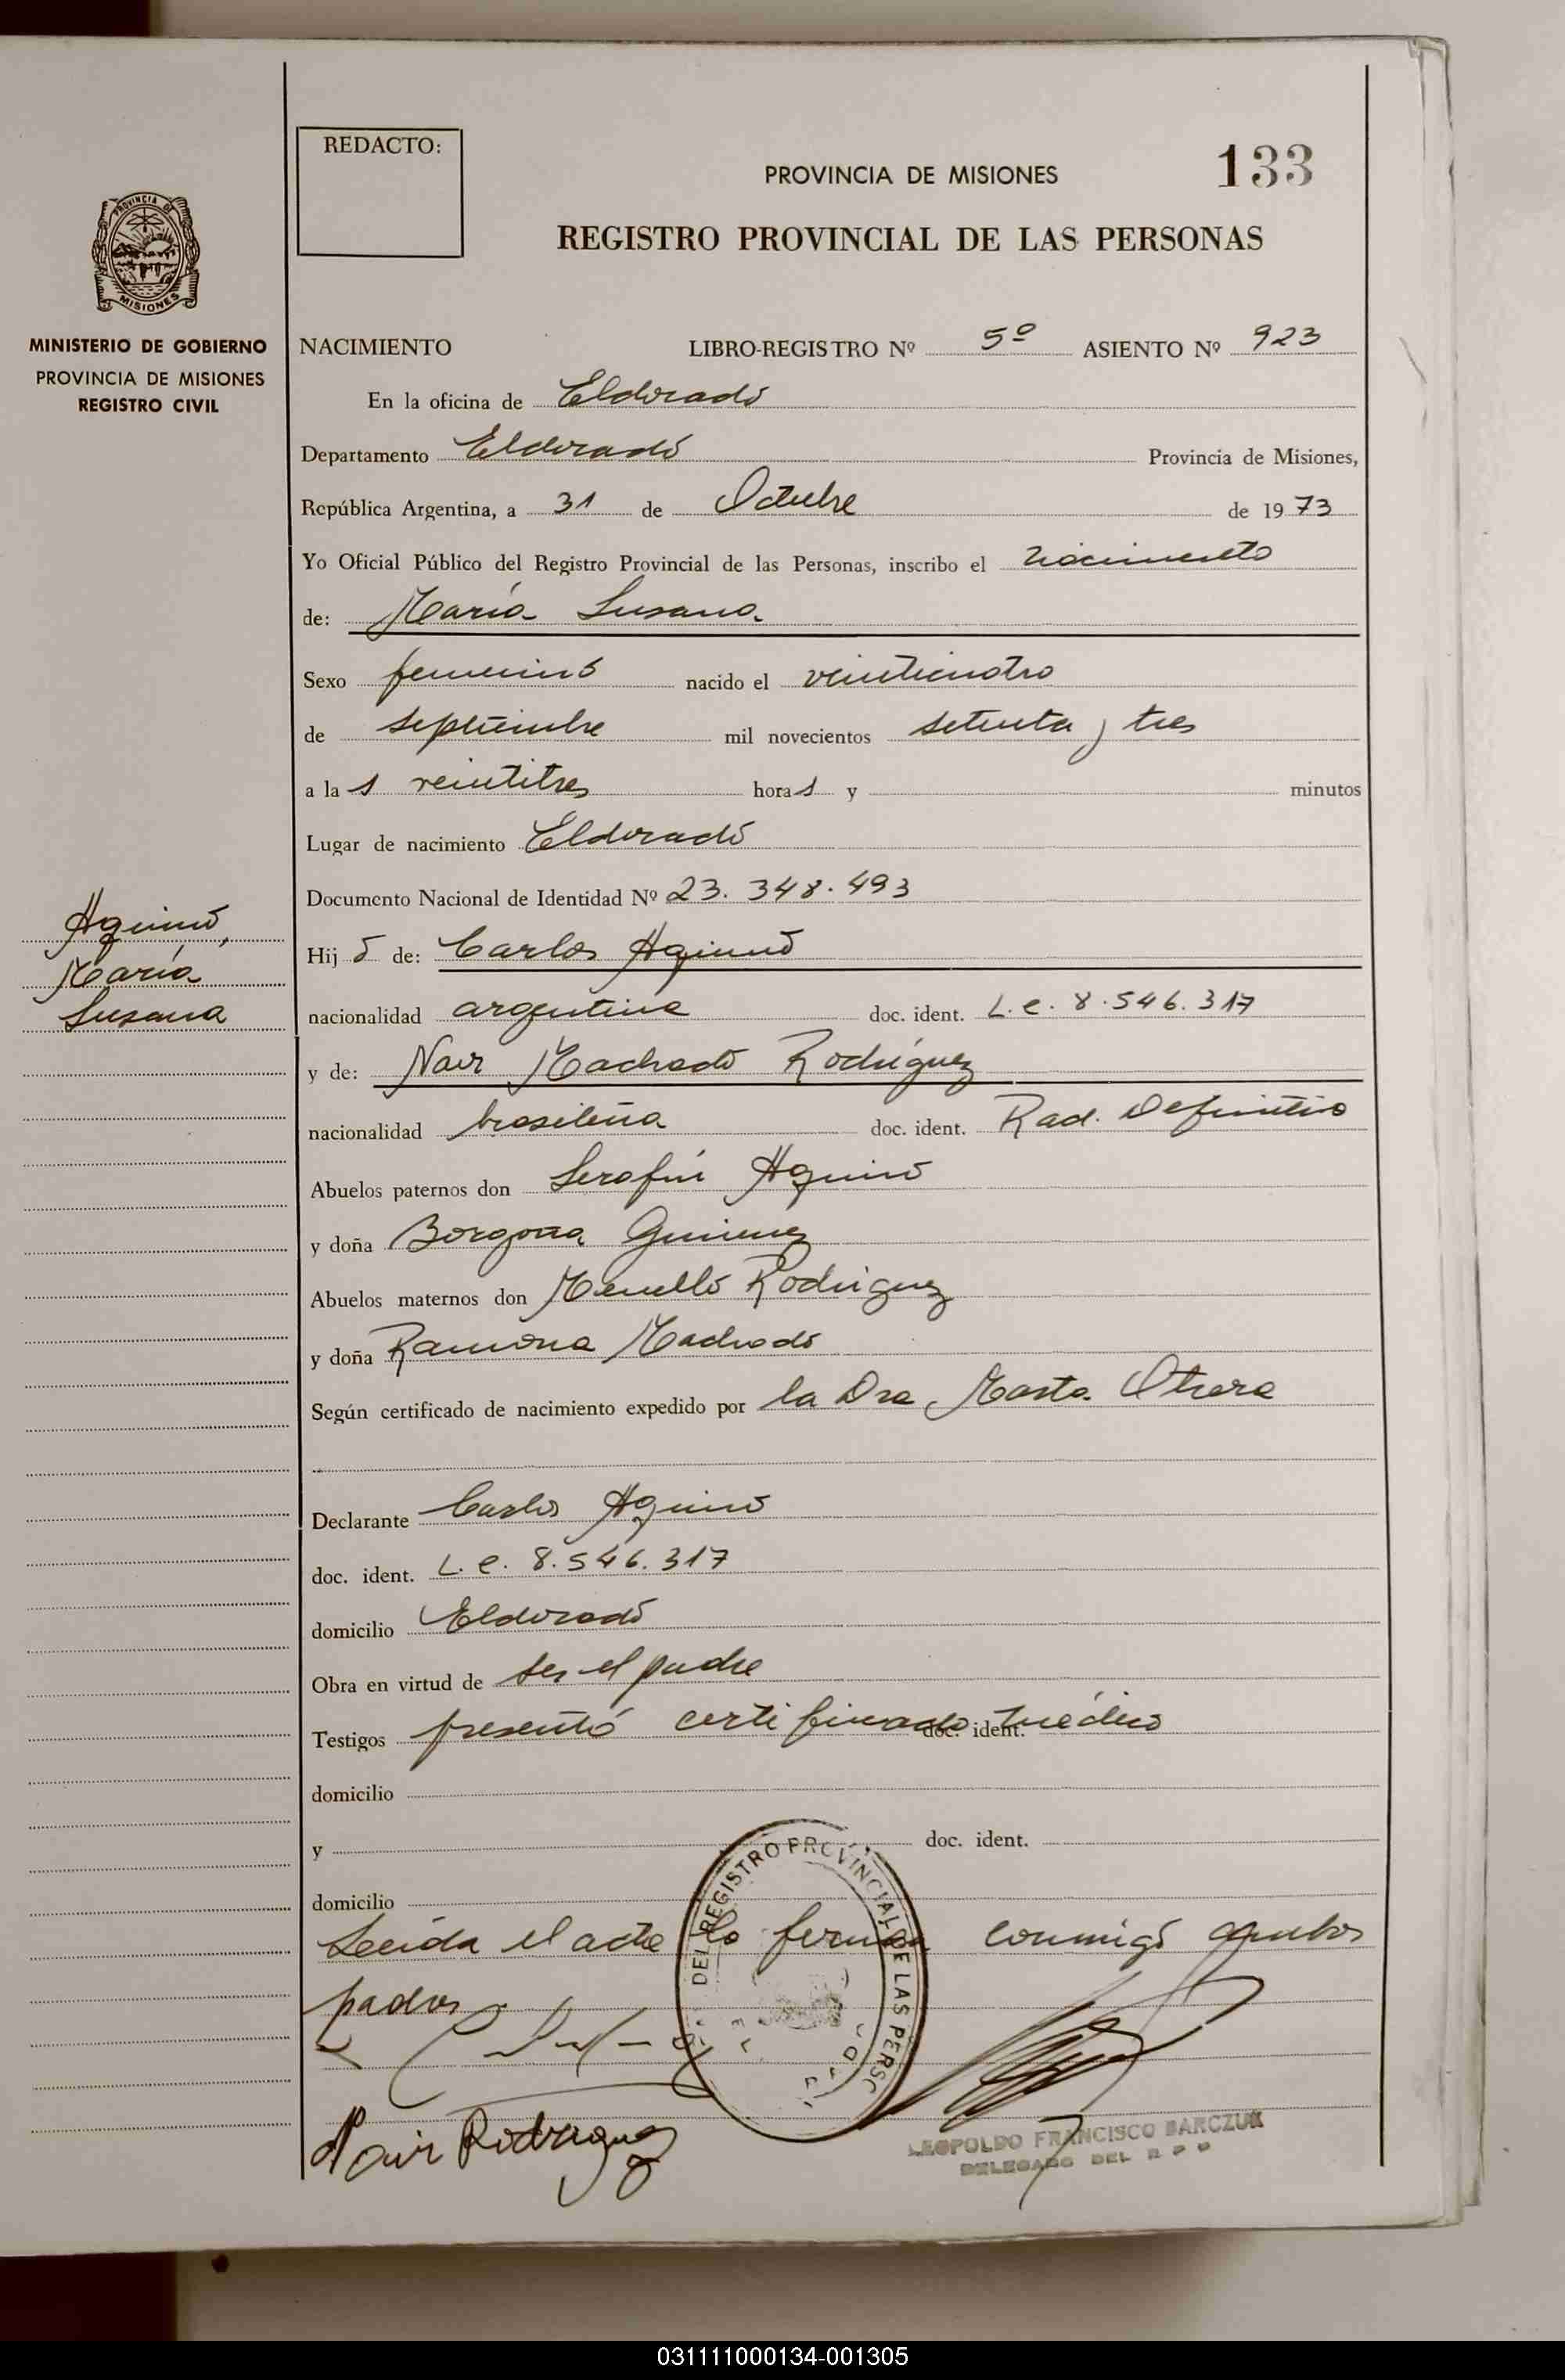 REDACTO:
PROVINCIA DE MISIONES
133
REGISTRO PROVINCIAL DE LAS PERSONAS
PROVINCIA DE
MISIONES
MINISTERIO DE GOBIERNO
PROVINCIA DE MISIONES
REGISTRO CIVIL
NACIMIENTO LIBRO-REGISTRO Nº 5º ASIENTO Nº 923
En la oficina de Eldorado
Departamento Eldorado Provincia de Misiones,
República Argentina, a 31 de Octubre de 1973
Yo Oficial Público del Registro Provincial de las Personas, inscribo el nacimiento
de: María Susana
Sexo femenino nacido el veinticuatro
de septiembre mil novecientos setenta y tres
a la s veintitres horas y minutos
Lugar de nacimiento Eldorado
Documento Nacional de Identidad Nº 23.348.493
Aquino,
María
Susana
Hijo de: Carlos Aquino
nacionalidad argentina doc. ident. L.e. 8.546.317
y de: Nair Machado Rodriguez
nacionalidad brasileña doc. ident. Rad. Definitiva
Abuelos paternos don Serafín Aquino
y doña Borgoña Gimenez
Abuelos maternos don Rodriguez
y doña Ramona Machado
Según certificado de nacimiento expedido por la Dra Marta
Declarante Carlos Aquino
doc. ident. L.e. 8.546.317
domicilio Eldorado
Obra en virtud de ser el padre
Testigos presentó certificado doc. ident. médico
domicilio
y doc. ident.
domicilio
Leida el acta la firman conmigo ambos
padres
DEL REGISTRO PROVINCIAL DE LAS PERSO
Nair Rodriguez
LEOPOLDO FRANCISCO BARCZUK
DELEGADO DEL R P P
031111000134-001305